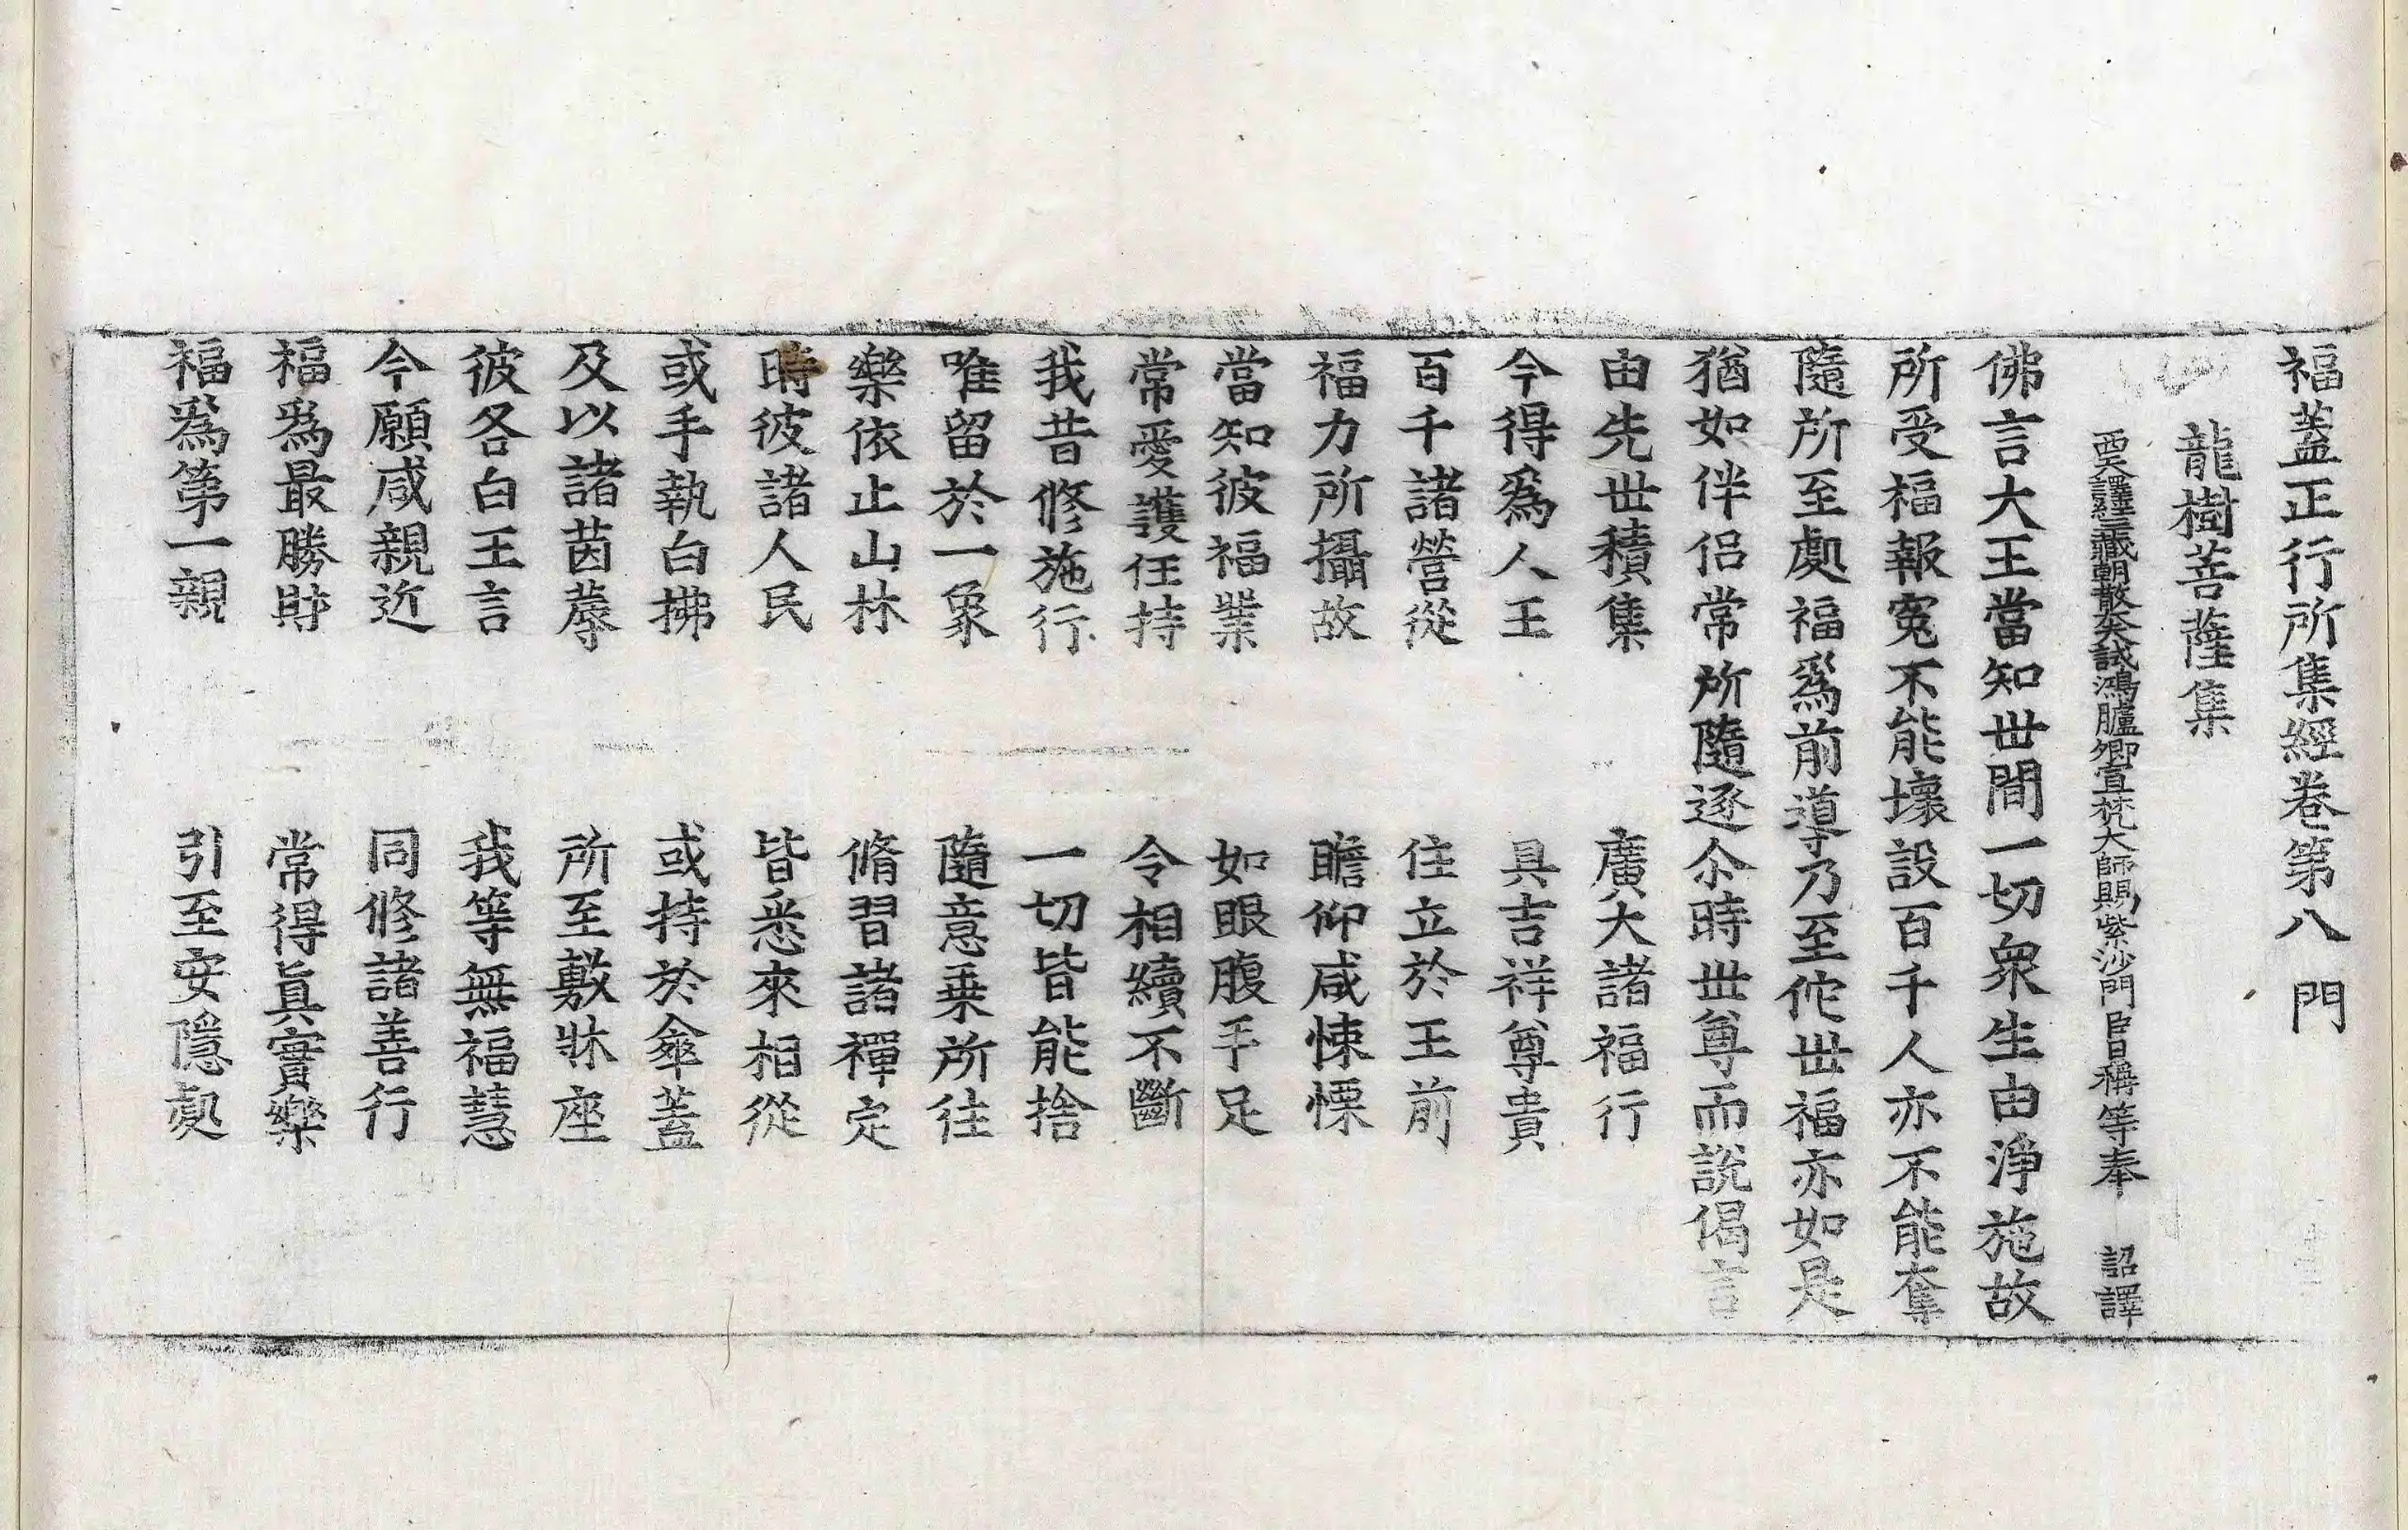 福蓋正行所集經卷第八　門
龍樹菩薩集
西天譯經三藏朝散大夫試鴻臚卿宣梵大師賜紫沙門臣日稱等奉　詔譯
佛言大王當知世間一切衆生由淨施故
所受福報寃不能壞設百千人亦不能奪
隨所至處福爲前導乃至佗世福亦如是
猶如伴侶常所隨逐尒時世尊而說偈言
由先世積集　廣大諸福行
今得爲人王　具吉祥尊貴
百千諸營從　住立於王前
福力所攝故　瞻仰咸悚慄
當知彼福業　如眼腹手足
常愛護任持　令相續不斷
我昔修施行　一切皆能捨
唯留於一象　隨意乗所往
樂依止山林　脩習諸禪定
時彼諸人民　皆悉來相從
或手執白拂　或持於傘蓋
及以諸茵蓐　所至敷牀座
彼各白王言　我等無福慧
今願咸親近　同修諸善行
福爲最勝財　常得眞實樂
福爲第一親　引至安隱處